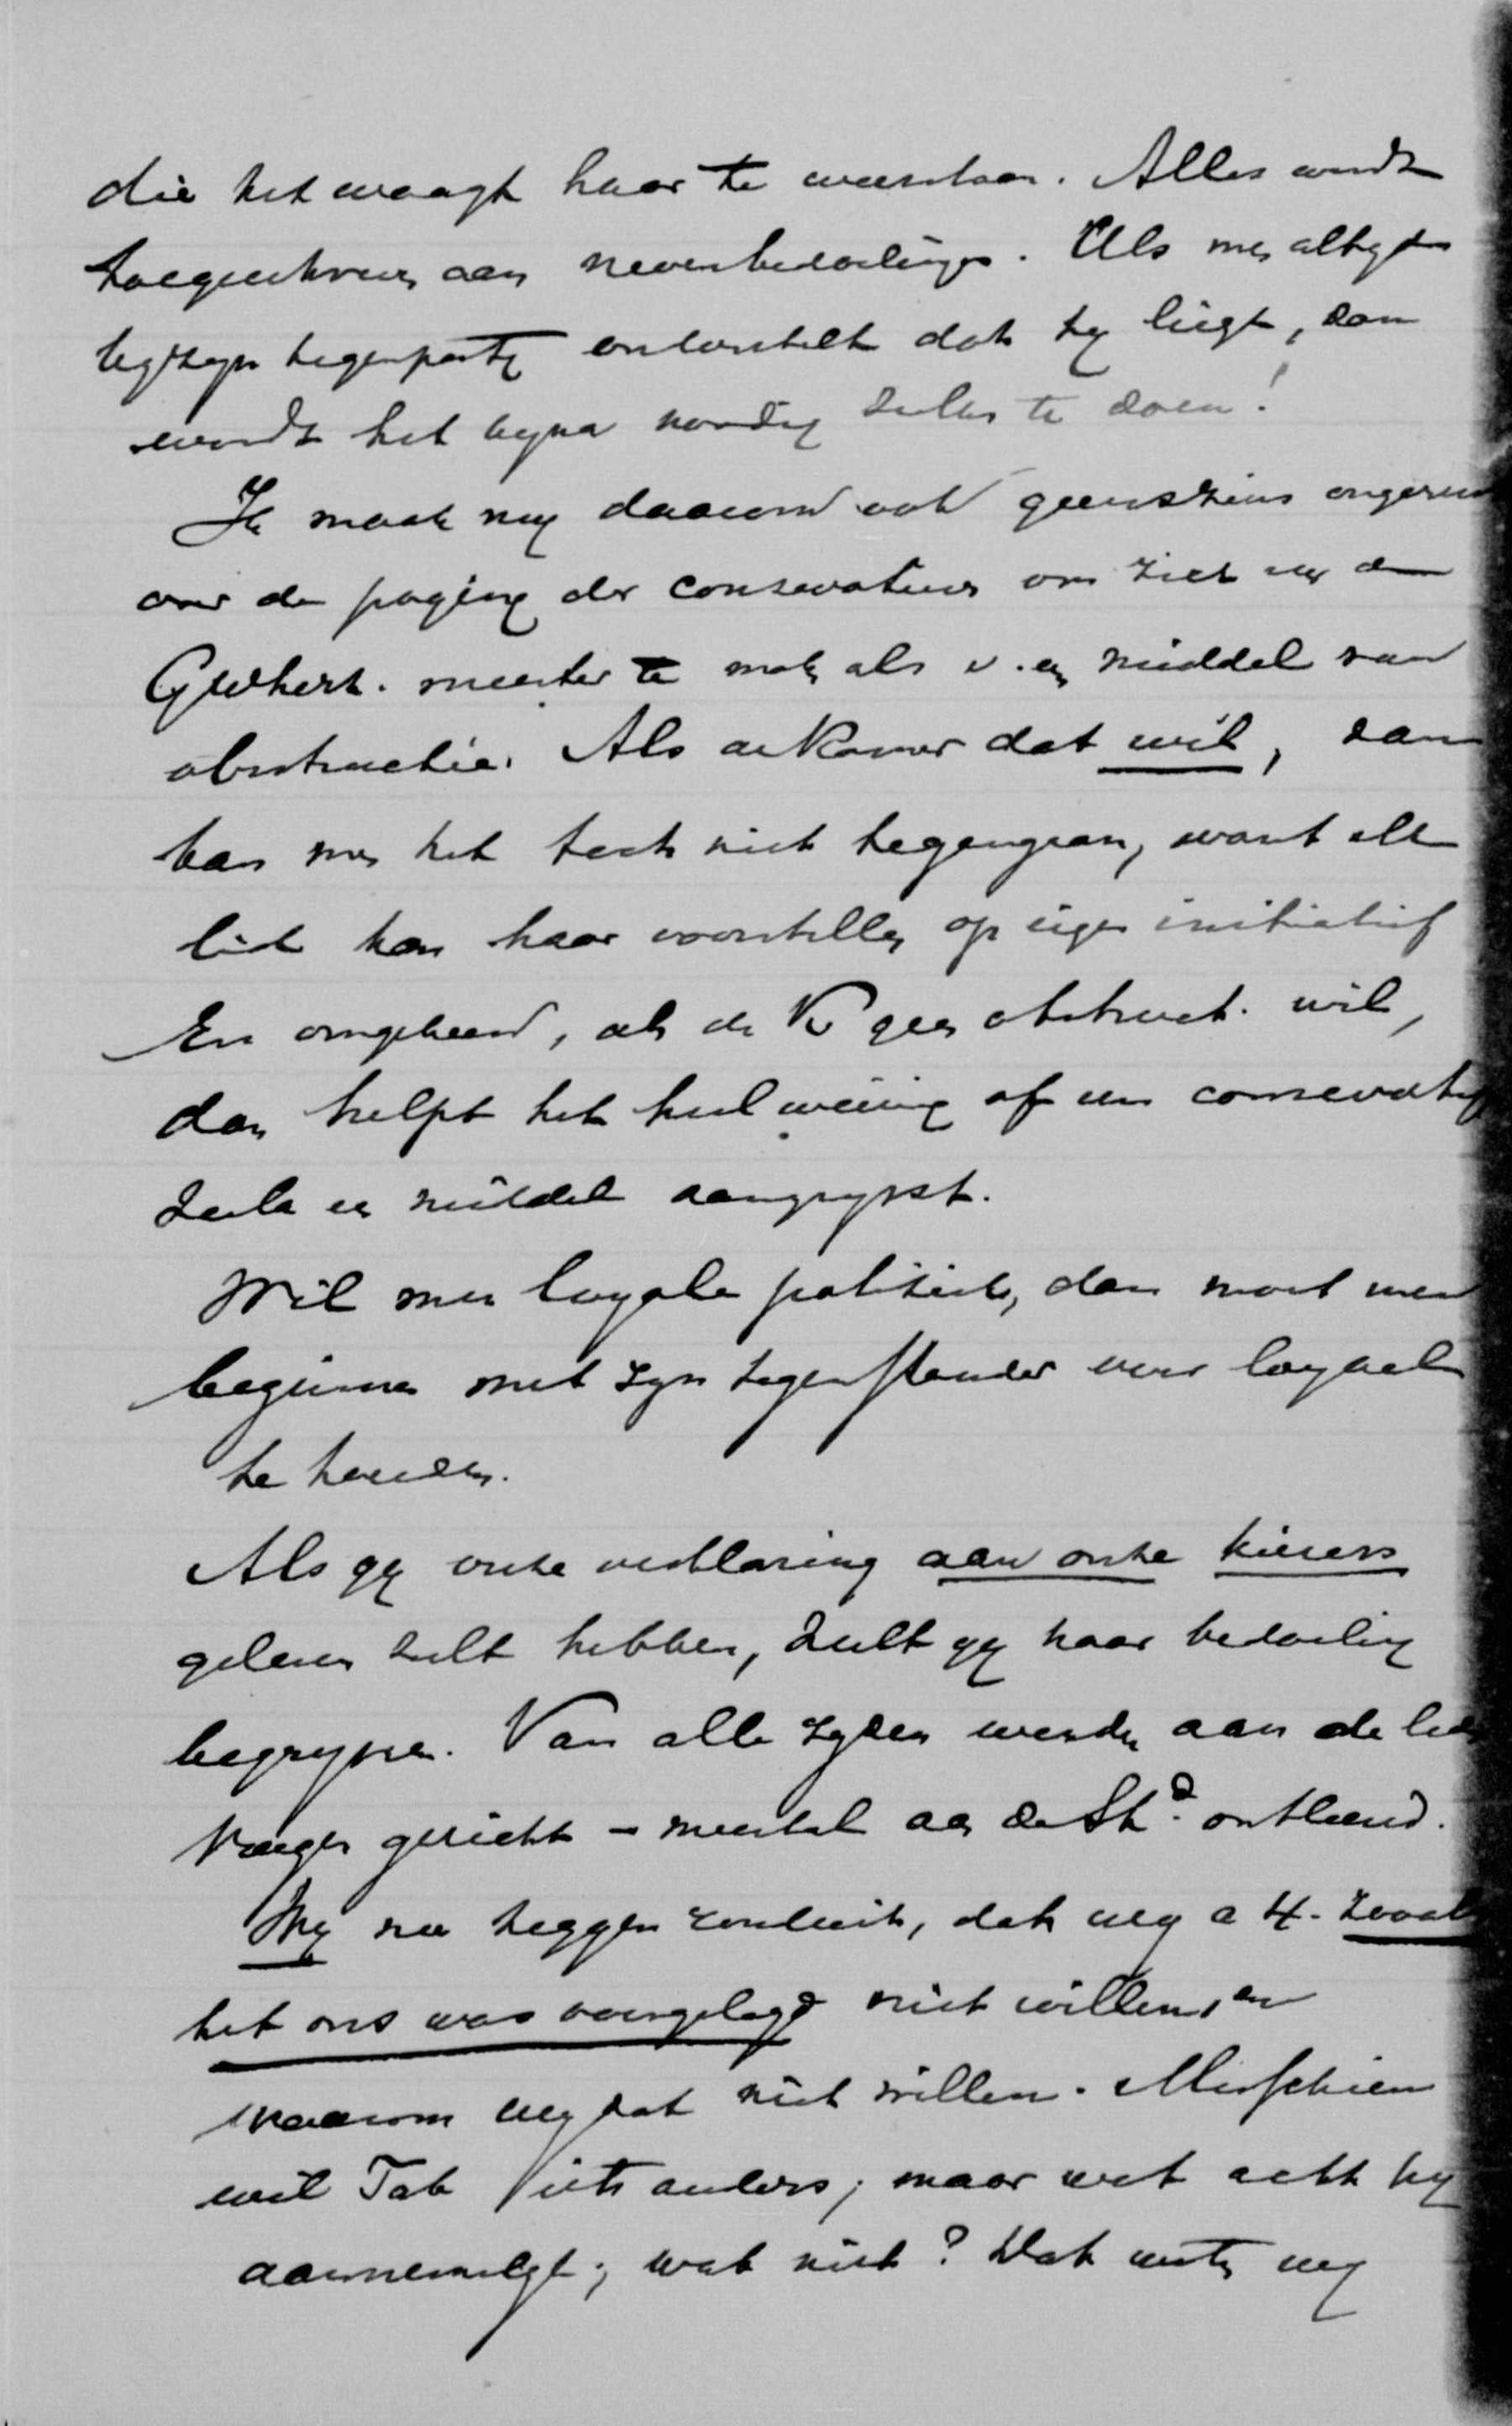 die het waagt haar te weerstaan. Alles wordt
toegeschreven aan nevenbedoelingen. Als men altyd
by zyn tegenparty onderstelt dat hy liegt, dan
wordt het byna noodig zulks te doen!
Ik maak my daarom ook geenszins ongerust
over de poging der conservatieven om zich van de
Gwherz. meester te mak als v. een middel van
obstructie. Als de Kamer dat wil, dan
kan men het toch niet tegengaan, want elk
lid kan haar voorstellen op eigen initiatief
En omgekeerd, als de K geen obstruct. wil,
dan helpt het heel weinig of een conservatief
zulk een middel aangrypt.
Wil men loyale politiek, dan moet men
beginnen met zyn tegenstander voor loyaal
te houden.
Als gy onze verklaring aan onze kiezers
gelezen zult hebben, zult gy haar bedoeling
begrypen. Van alle zyden werden aan de leden
vragen gericht – meestal aan de St.d ontleend.
Wy nu zeggen ronduit, dat wy a 4. zooals
het ons was voorgelegd niet willen, en
waarom wy dat niet willen. Misschien
wil Tak iets anders; maar wat acht hy
aannemelyk; wat niet? Dat weten wy